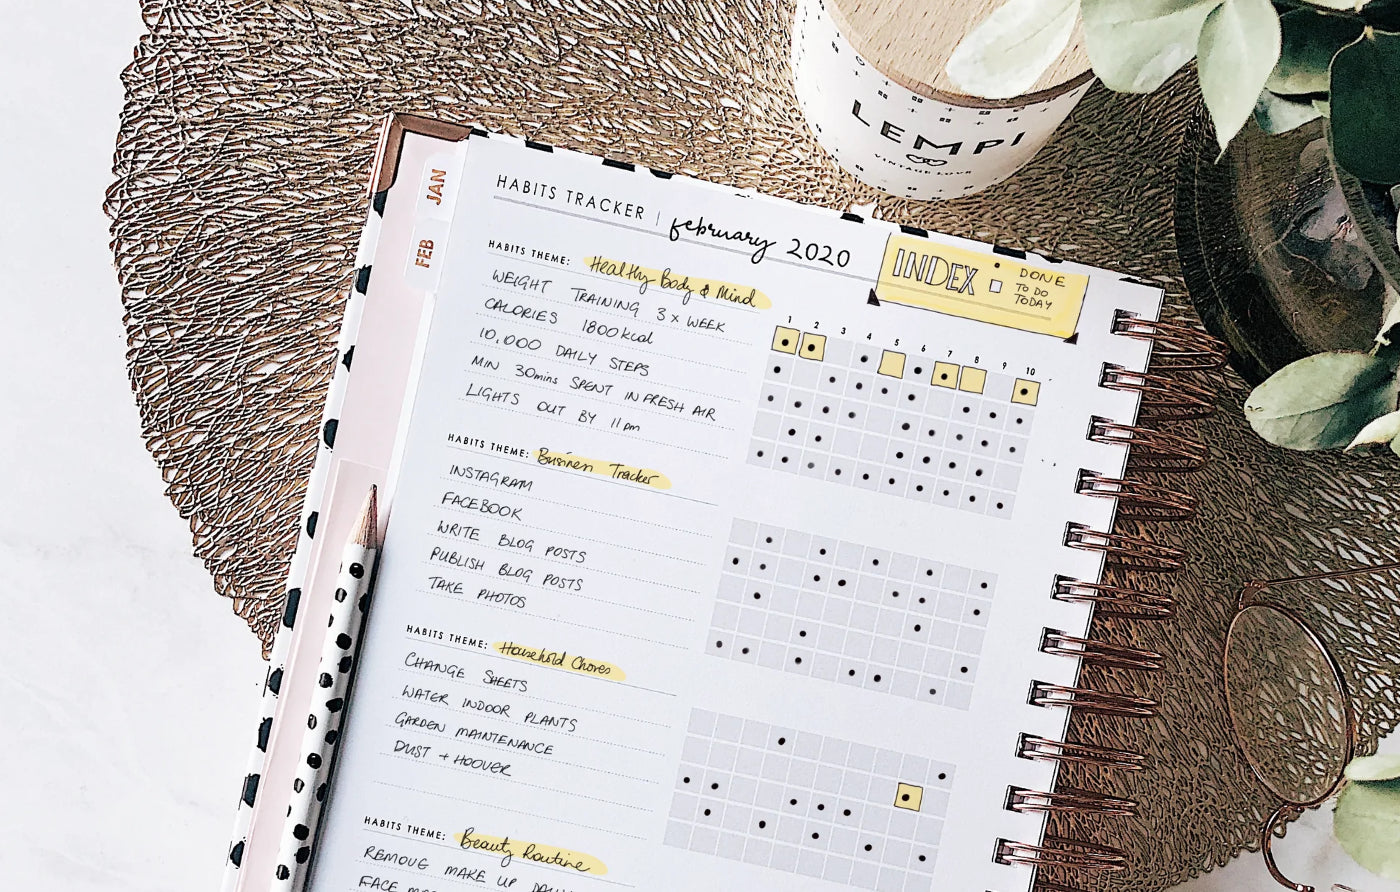 LEMPI
VINTAGE LOVE
JAN
FEB
HABITS TRACKER | february 2020
INDEX
DONE
TO DO
TODAY
HABITS THEME: Healthy Body & Mind
WEIGHT TRAINING 3 x WEEK
CALORIES 1800 kcal
10,000 DAILY STEPS
MIN 30mins SPENT IN FRESH AIR
LIGHTS OUT BY 11pm
1 2 3 4 5 6 7 8 9 10
HABITS THEME: Business Tracker
INSTAGRAM
FACEBOOK
WRITE BLOG POSTS
PUBLISH BLOG POSTS
TAKE PHOTOS
HABITS THEME: Household Chores
CHANGE SHEETS
WATER INDOOR PLANTS
GARDEN MAINTENANCE
DUST + HOOVER
HABITS THEME: Beauty Routine
REMOVE MAKE UP
FACE